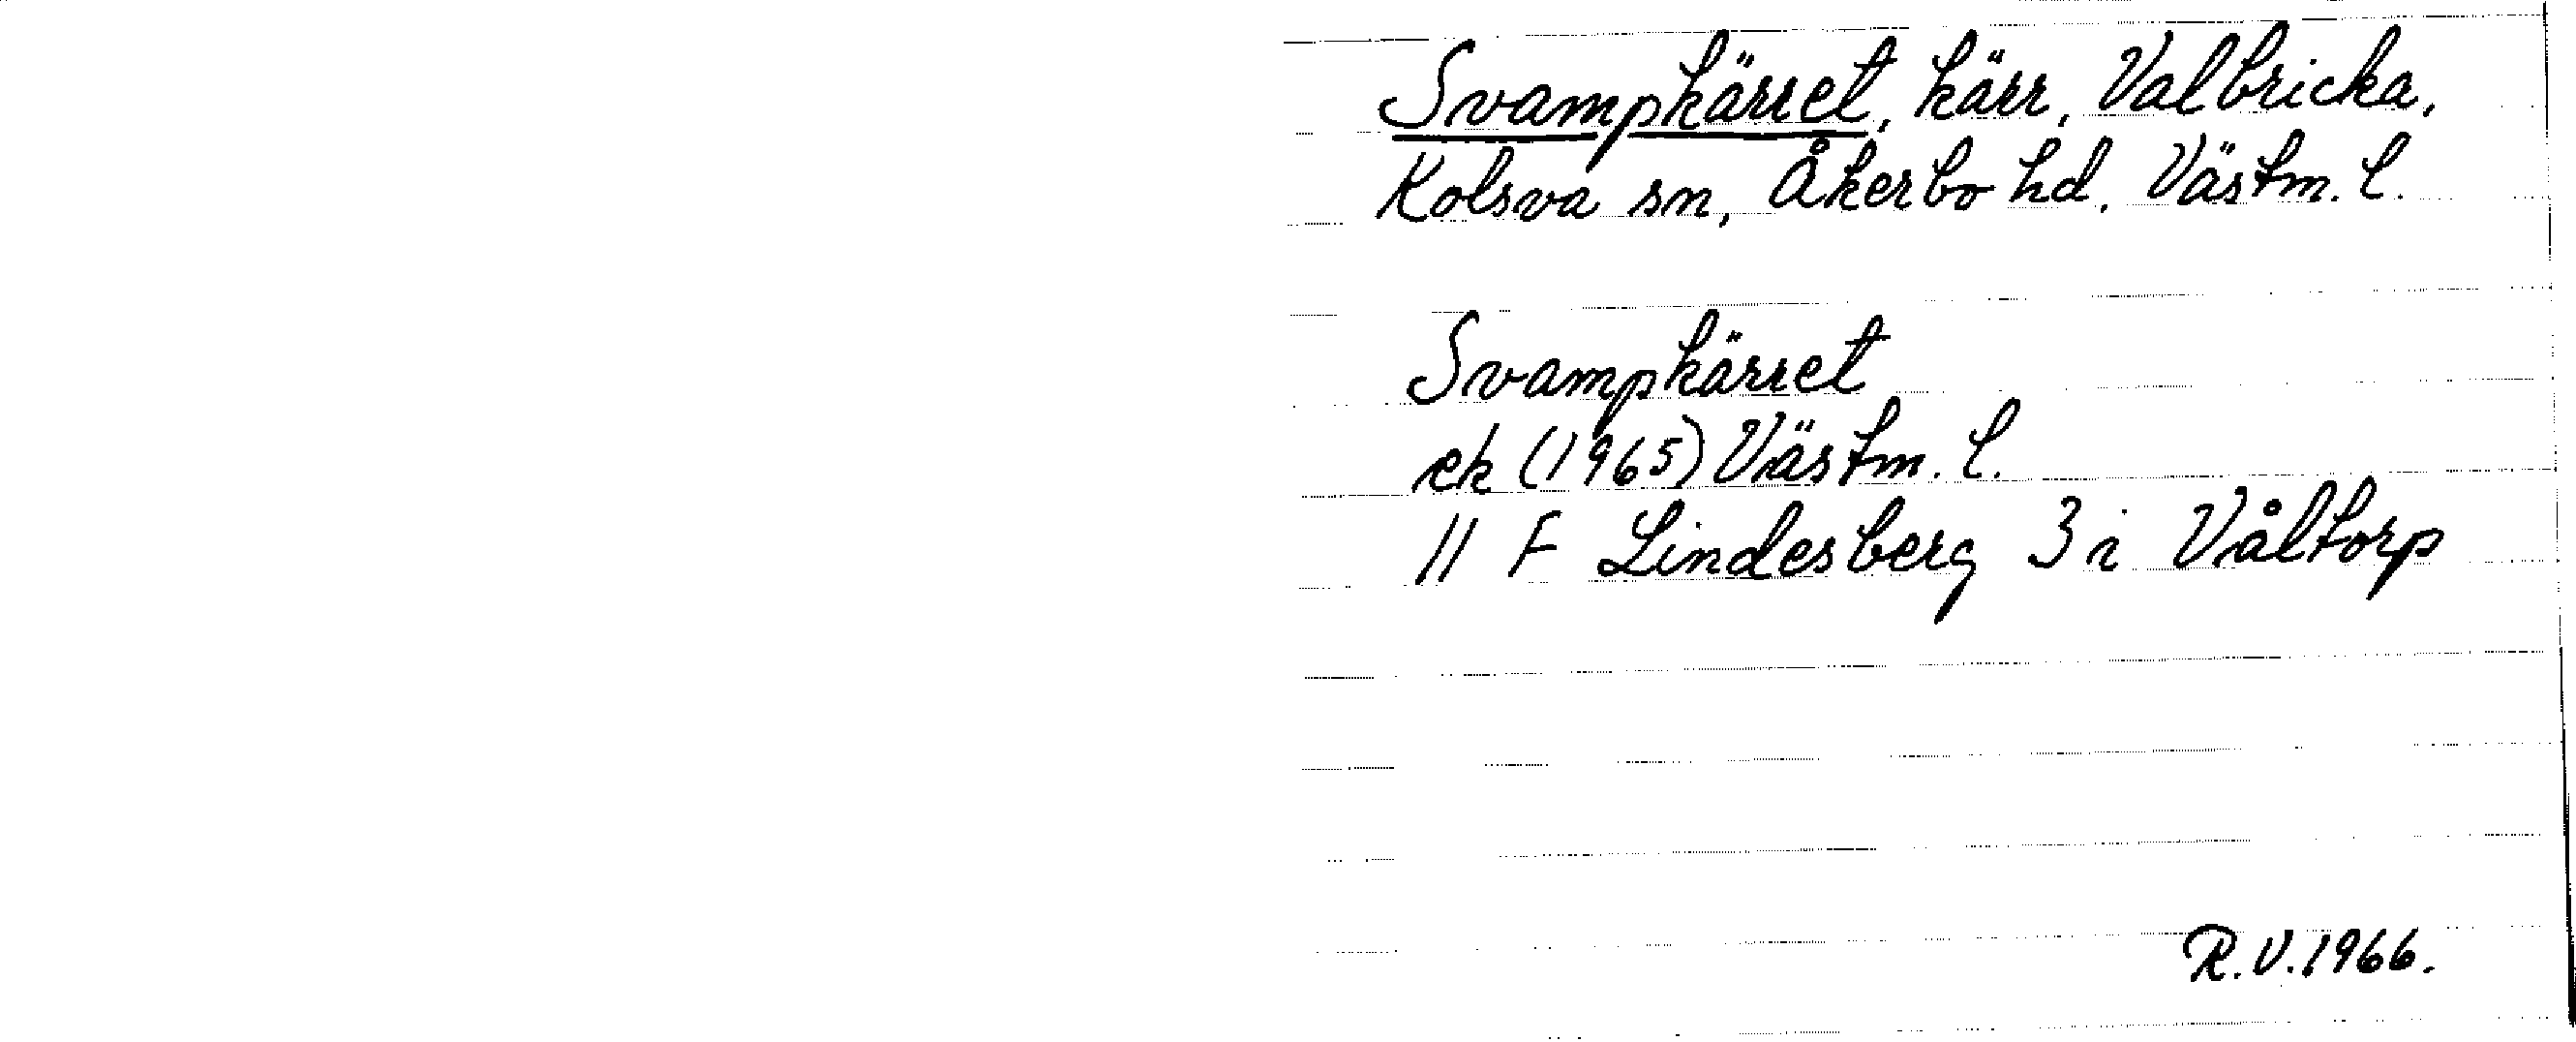 Svampkärret, kärr, Valbricka,
Kolsva sn, Åkerbo hd. Västm. l.
Svampkärret
ek (1965) Västm. l.
11 F Lindesberg 3 i Våltorp
R.V. 1966.